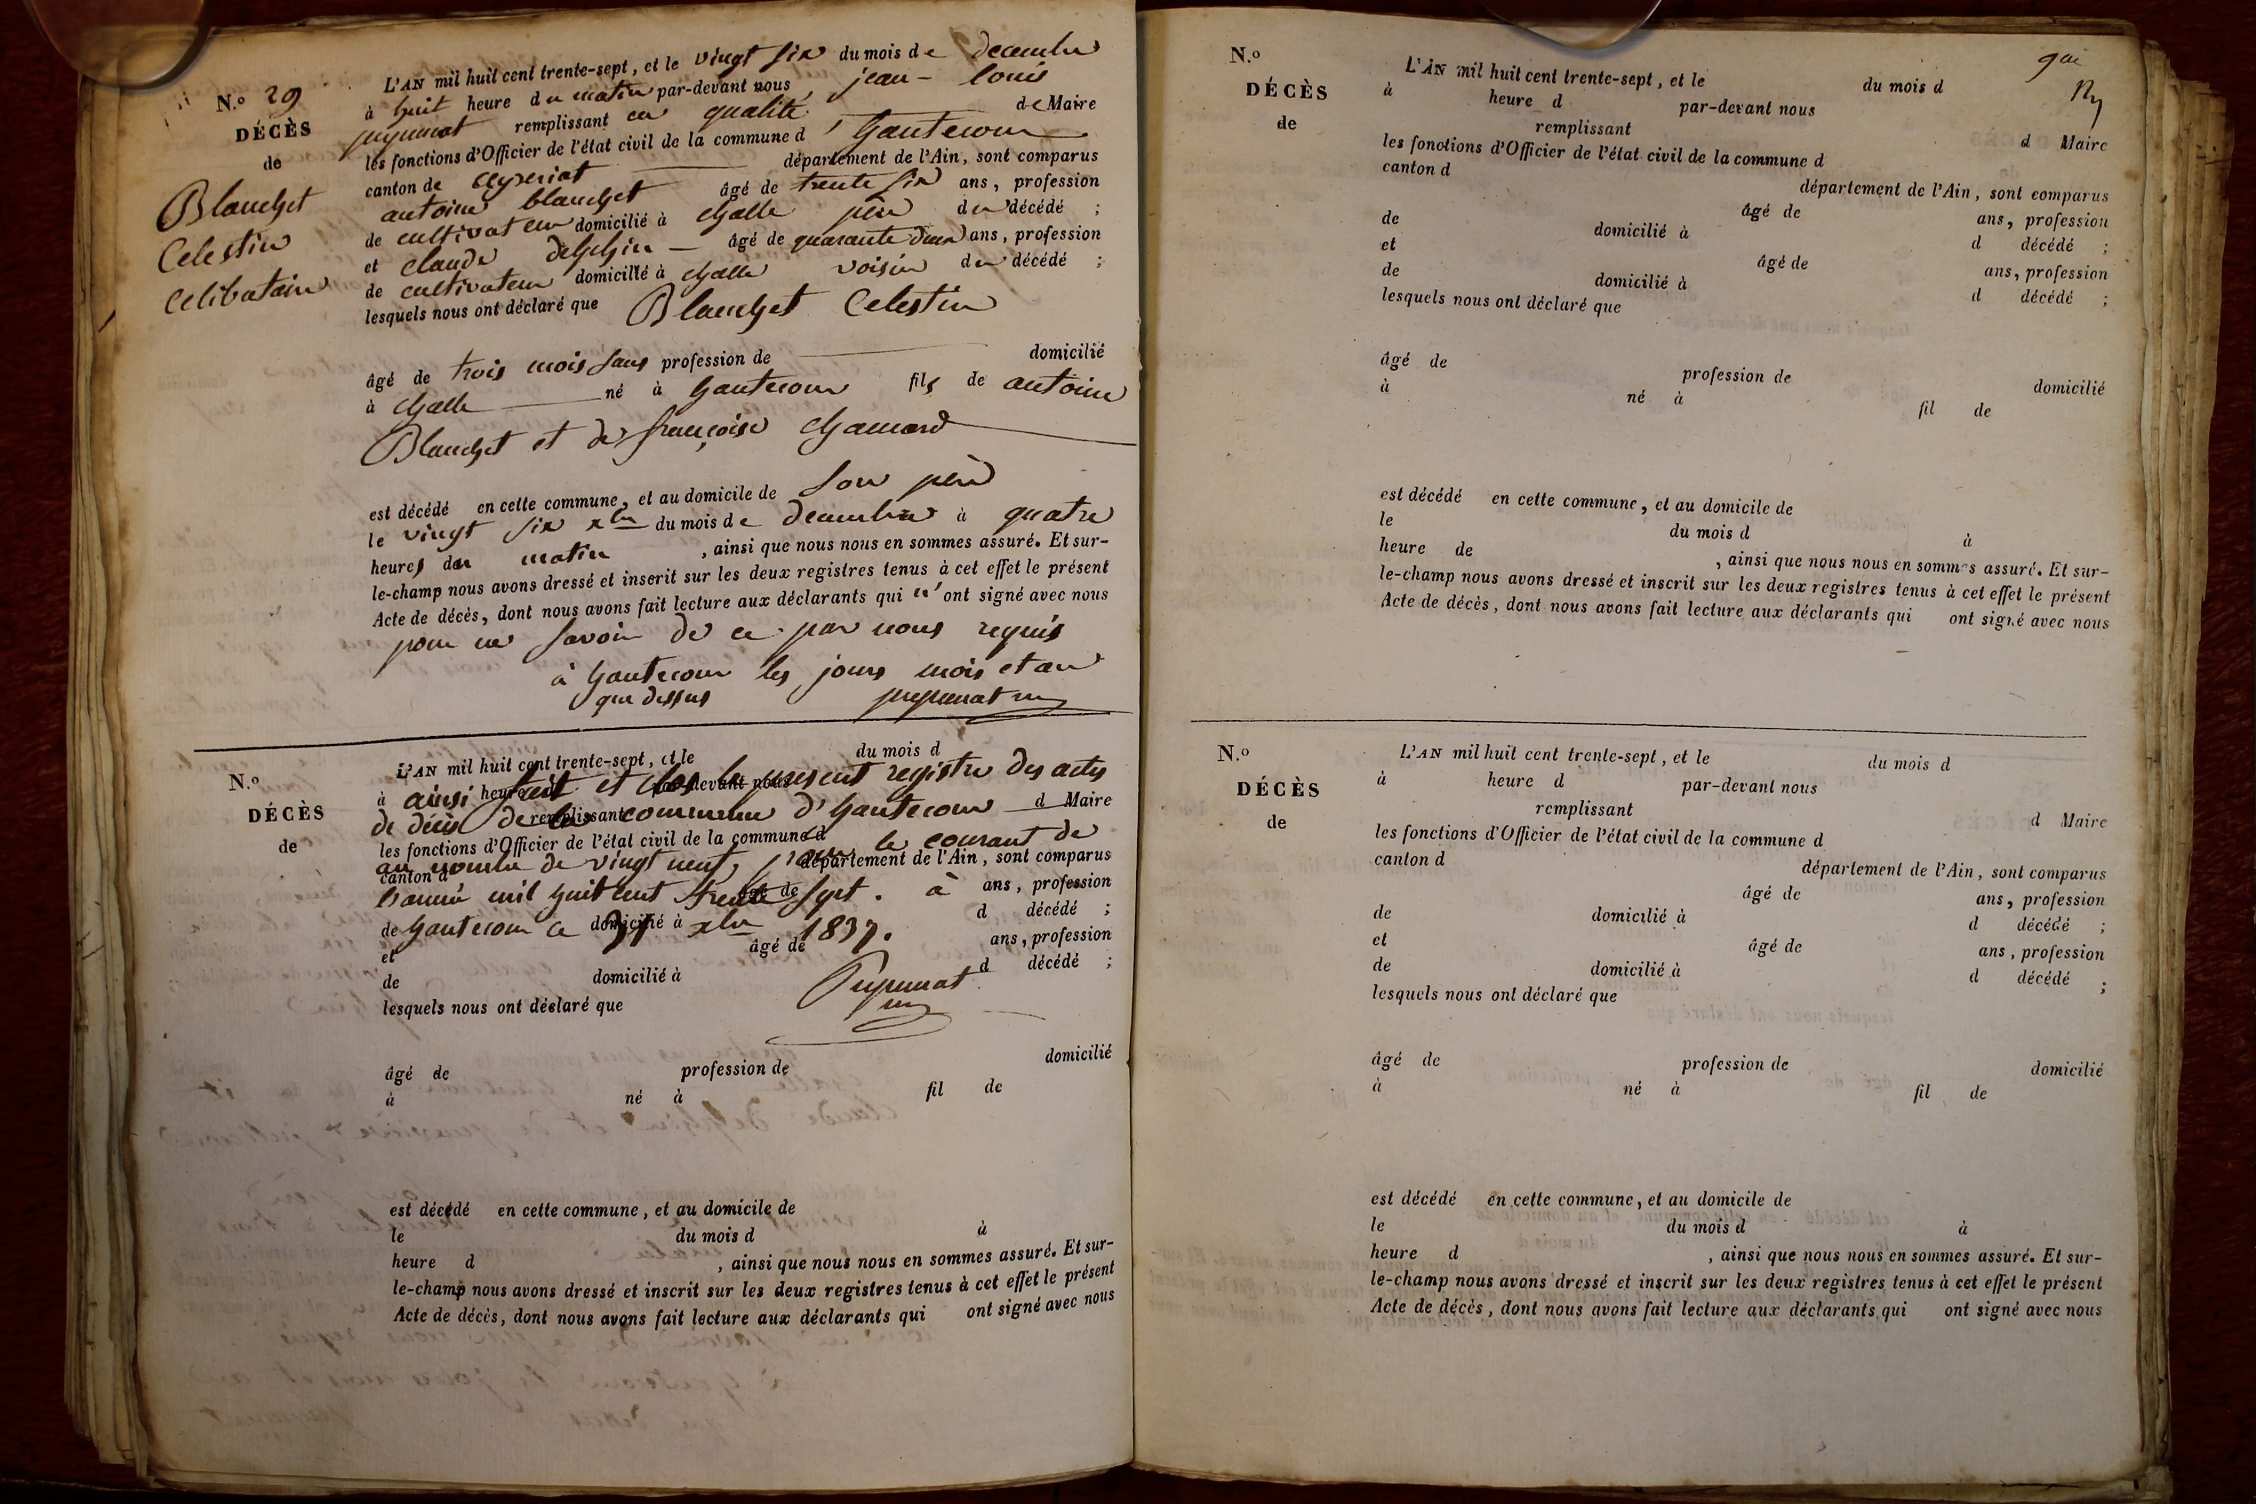 N.º 29
DÉCÈS
de
Blanchet
Celestin
Celibataire
L'AN mil huit cent trente-sept, et le vingt six du mois de decembre
à huit heure du matin par-devant nous jean-louis
remplissant en qualité de Maire
les fonctions d'Officier de l'état civil de la commune d'hautecour
canton de Ceyseriat département de l'Ain, sont comparus
antoine blanchet âgé de trente six ans, profession
de cultivateur domicilié à challe père du décédé ;
et claude delphin âgé de quarante deux ans, profession
de cultivateur domicilié à challe voisin du décédé ;
lesquels nous ont déclaré que Blanchet Celestin
âgé de trois mois sans profession de domicilié
à challe né à hautecour fils de antoine
Blanchet et de françoise chanard
est décédé en cette commune, et au domicile de son père
le vingt six xbre du mois de decembre à quatre
heures du matin , ainsi que nous nous en sommes assuré. Et sur-
le-champ nous avons dressé et inscrit sur les deux registres tenus à cet effet le présent
Acte de décès, dont nous avons fait lecture aux déclarants qui n'ont signé avec nous
pour ne savoir de ce par nous requis
à hautecour les jours mois et an
que dessus
N.º
DÉCÈS
de
L'AN mil huit cent trente-sept, et le du mois d
à heure d par-devant nous
ainsi fait et clos le present registre des actes
remplissant d Maire
de décès de la commune d'hautecour
les fonctions d'Officier de l'état civil de la commune d
au nombre de vingt neuf, pour le courant de
canton d département de l'Ain, sont comparus
l'année mil huit cent trente sept. à
âgé de ans, profession
hautecour ce 31 xbre 1837.
de domicilié à d décédé ;
et âgé de ans, profession
de domicilié à d décédé ;
lesquels nous ont déclaré que
âgé de profession de domicilié
à né à fil de
est décédé en cette commune, et au domicile de
le du mois d à
heure d , ainsi que nous nous en sommes assuré. Et sur-
le-champ nous avons dressé et inscrit sur les deux registres tenus à cet effet le présent
Acte de décès, dont nous avons fait lecture aux déclarants qui ont signé avec nous
N.º
DÉCÈS
de
L'AN mil huit cent trente-sept, et le du mois d
à heure d par-devant nous
remplissant d Maire
les fonctions d'Officier de l'état civil de la commune d
canton d département de l'Ain, sont comparus
âgé de ans, profession
de domicilié à d décédé ;
et âgé de ans, profession
de domicilié à d décédé ;
lesquels nous ont déclaré que
âgé de profession de domicilié
à né à fil de
est décédé en cette commune, et au domicile de
le du mois d à
heure de , ainsi que nous nous en sommes assuré. Et sur-
le-champ nous avons dressé et inscrit sur les deux registres tenus à cet effet le présent
Acte de décès, dont nous avons fait lecture aux déclarants qui ont signé avec nous
N.º
DÉCÈS
de
L'AN mil huit cent trente-sept, et le du mois d
à heure d par-devant nous
remplissant d Maire
les fonctions d'Officier de l'état civil de la commune d
canton d département de l'Ain, sont comparus
âgé de ans, profession
de domicilié à d décédé ;
et âgé de ans, profession
de domicilié à d décédé ;
lesquels nous ont déclaré que
âgé de profession de domicilié
à né à fil de
est décédé en cette commune, et au domicile de
le du mois d à
heure d , ainsi que nous nous en sommes assuré. Et sur-
le-champ nous avons dressé et inscrit sur les deux registres tenus à cet effet le présent
Acte de décès, dont nous avons fait lecture aux déclarants qui ont signé avec nous